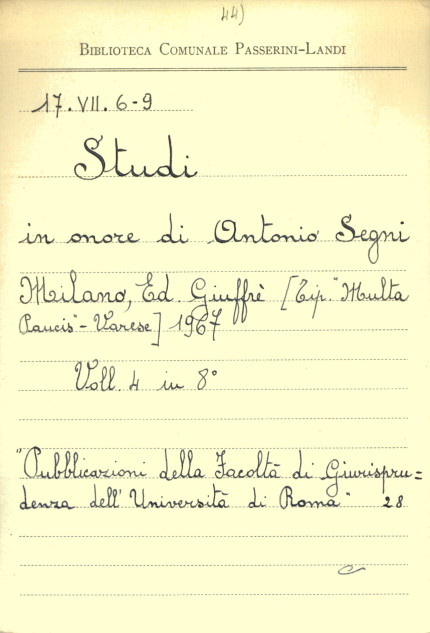 44)
BIBLIOTECA COMUNALE PASSERINI-LANDI
17. VII. 6-9
Studi
in onore di Antonio Segni
Milano, Ed. Giuffrè [Tip. "Multa
Paucis" - Varese] 1967
Voll. 4 in 8°
"Pubblicazioni della Facoltà di Giurispru=
denza dell'Università di Roma" 28